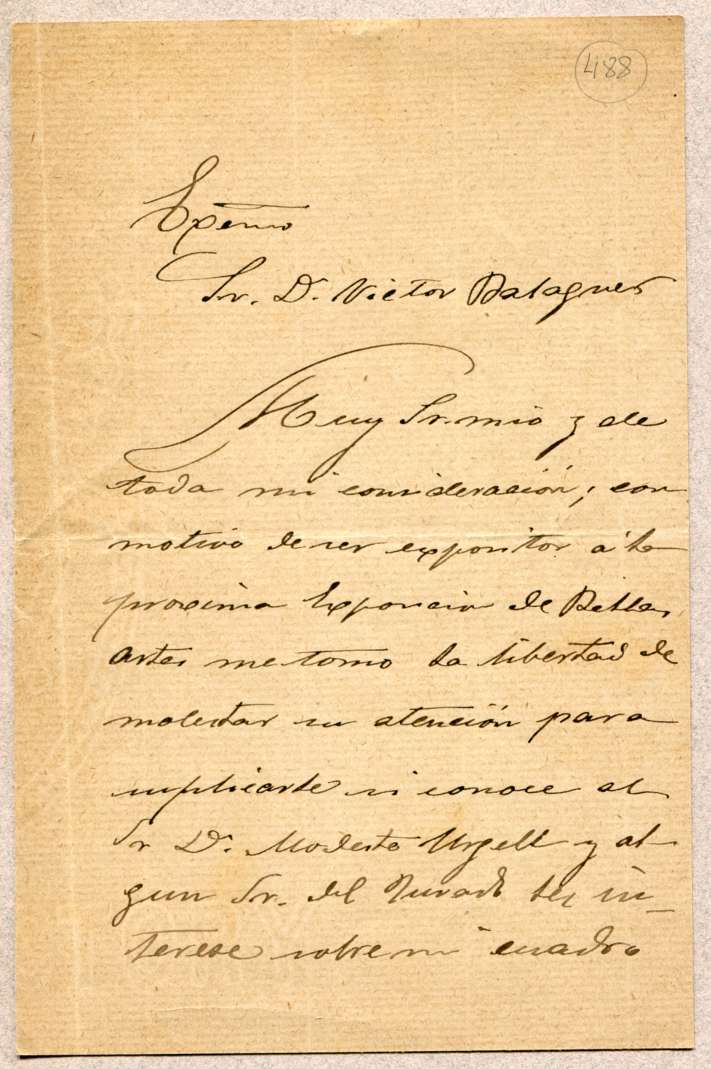 488
Exc̄mo
Sr. D. Victor Balaguer
Muy Sr. mio y de
toda mi consideración; con
motivo de ser expositor á la
proxima Exposicion de Bellas
artes me tomo la libertad de
molestar su atención para
suplicarle si conoce al
Sr D. Modesto Urgell y al-
gun Sr. del Jurado les in-
terese sobre mi cuadro